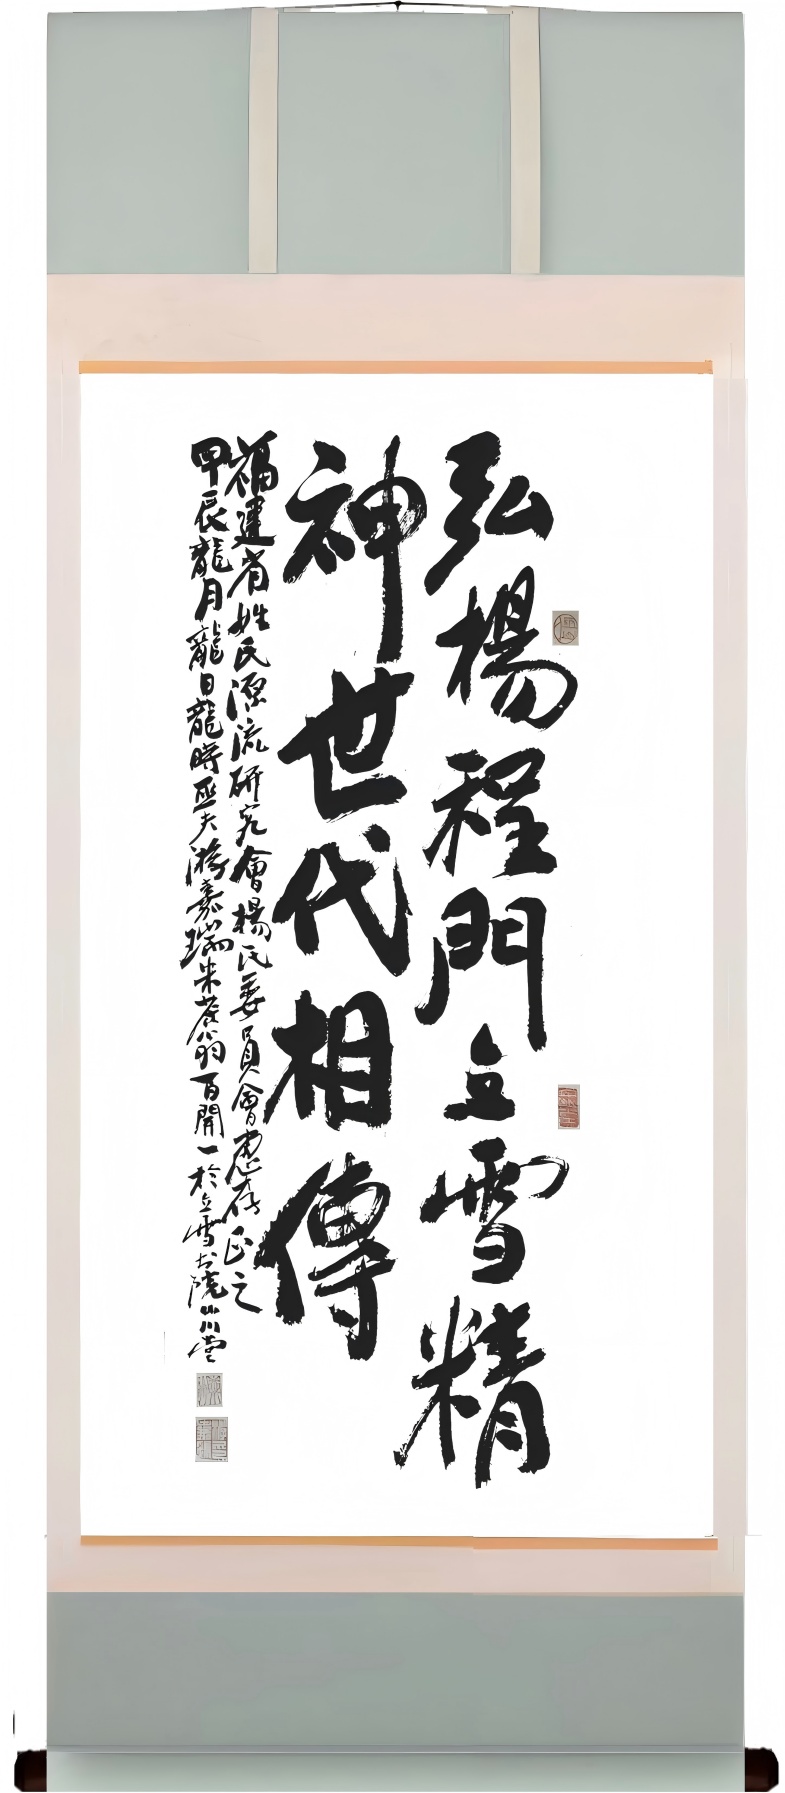 弘楊程門立雪精
神世代相傳
福建省姓氏源流研究會楊氏委員會惠存正之
甲辰龍月龍日龍時巫夫游嘉瑞米蒼翁百開一於立雪書院山川堂